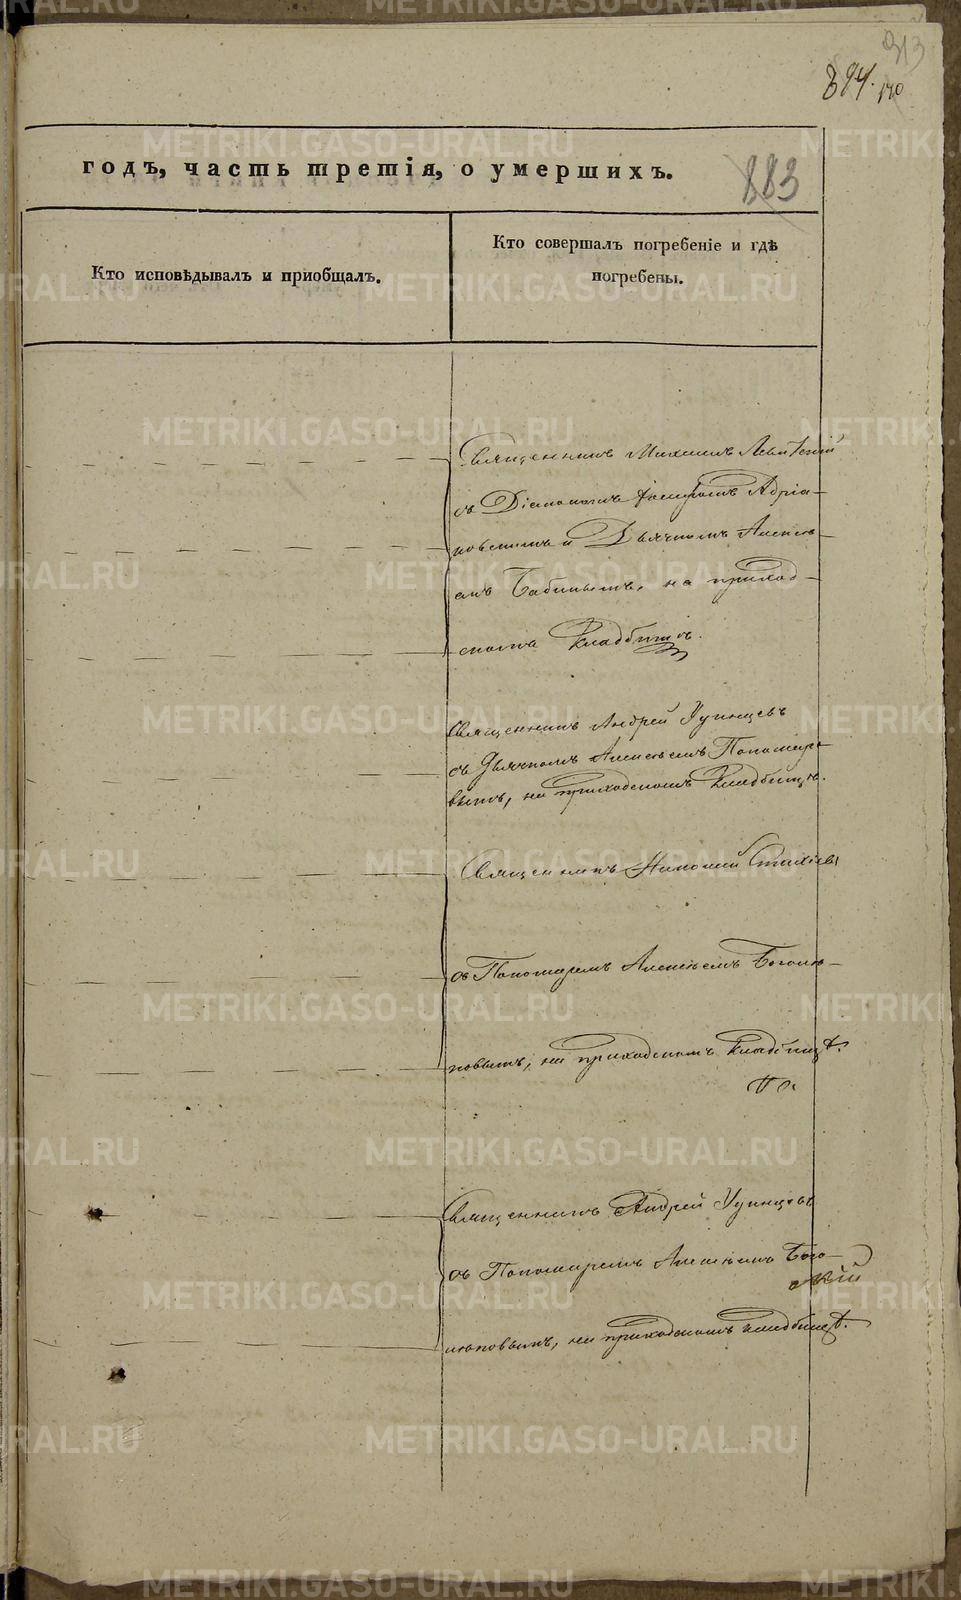 313
894.
годъ, часть третія, о умершихъ.
883
Кто исповѣдывалъ и приобщалъ.
Кто совершалъ погребеніе и гдѣ
погребены.
Священникъ Михаилъ Левитскій
съ Діакономъ Адріа-
новскимъ и Дьячкомъ Алексѣ-
емъ Бабинымъ, на приход-
скомъ Кладбищѣ.
Священникъ Андрей Удинцевъ
съ Дьячкомъ Алексѣемъ Пономаре-
вымъ, на приходскомъ Кладбищѣ.
Священникъ Николай
съ Пономаремъ Алексѣемъ
на приходскомъ Кладбищѣ.
Священникъ Андрей Удинцевъ
съ Пономаремъ Алексѣемъ Бого-
на приходскомъ кладбищѣ.
METRIKI.GASO-URAL.RU